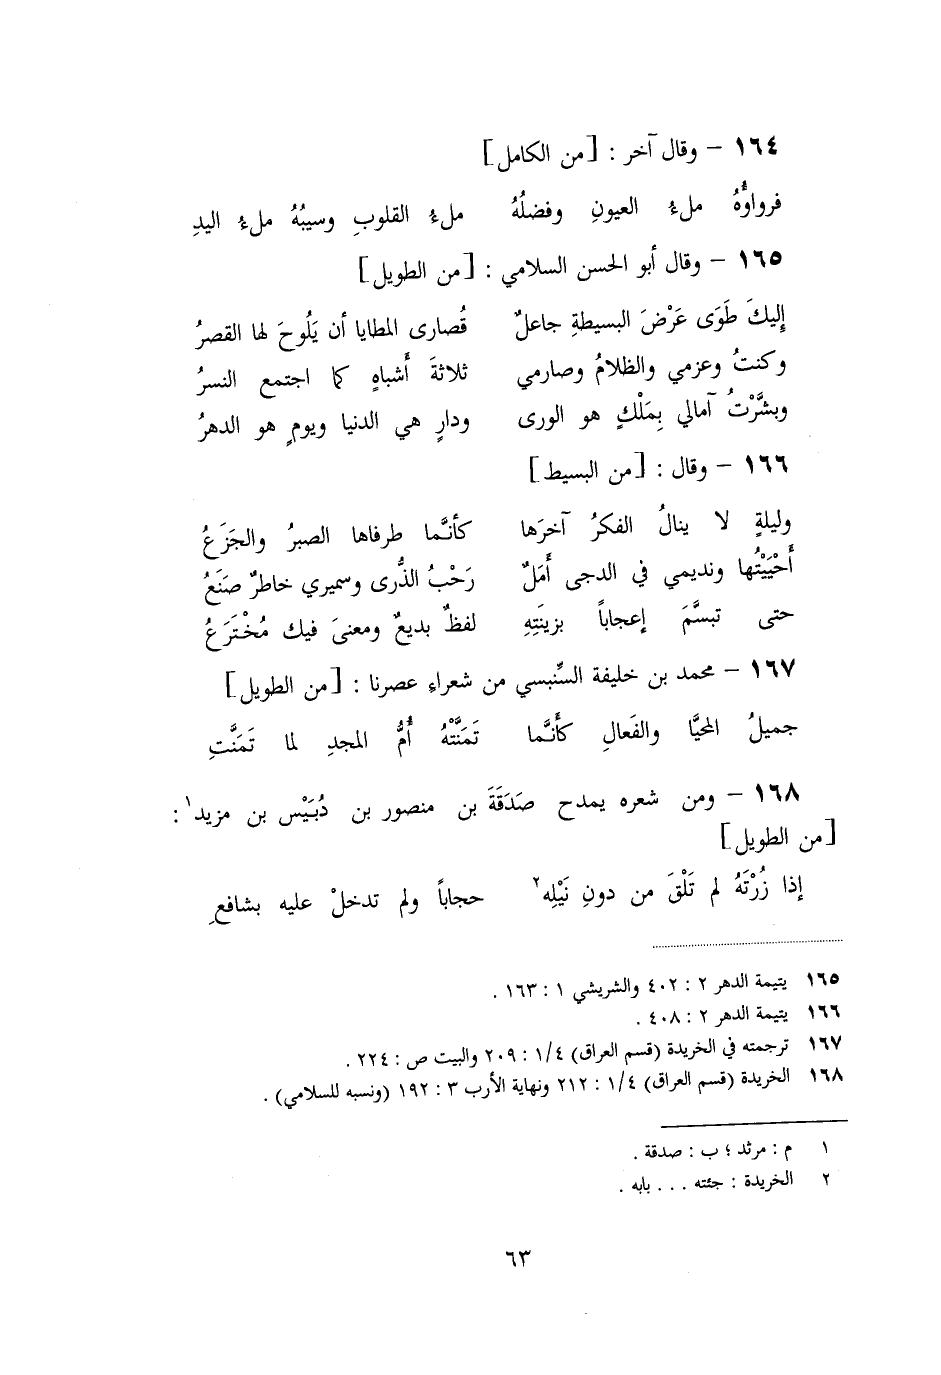 ١٦٤ – وقال آخر : [من الكامل]
فرواؤُهُ ملءُ العيونِ وفضلُهُ ملءُ القلوبِ وسيبُهُ ملءُ اليدِ
١٦٥ – وقال أبو الحسن السلامي : [من الطويل]
إليكَ طَوَى عَرْضَ البسيطةِ جاعلٌ قُصارى المطايا أن يَلُوحَ لها القصرُ
وكنتُ وعزمي والظلامُ وصارمي ثلاثةَ أَشباهٍ كما اجتمع النسرُ
وبشَّرْتُ آمالي بِمَلْكٍ هو الورى ودارٍ هي الدنيا ويومٍ هو الدهرُ
١٦٦ – وقال : [من البسيط]
وليلةٍ لا ينالُ الفكرُ آخرَها كأنَّما طرفاها الصبرُ والجَزَعُ
أَحْيَيْتُها ونديمي في الدجى أَمَلٌ رَحْبُ الذُّرى وسميري خاطرٌ صنَعُ
حتى تبسَّمَ إعجاباً بزينَتِهِ لفظٌ بديعٌ ومعنىً فيك مُخْتَرَعُ
١٦٧ – محمد بن خليفة السِّنبسي من شعراءِ عصرنا : [من الطويل]
جميلُ المحيَّا والفَعالِ كأَنَّما تَمَنَّتْهُ أُمُّ المجدِ لما تَمَنَّتِ
١٦٨ – ومن شعره يمدح صَدَقَةَ بن منصور بن دُبَيْس بن مزيد١ :
[من الطويل]
إذا زُرْتَهُ لم تَلْقَ من دونِ نَيْلِه٢ حجاباً ولم تدخلْ عليه بشافعِ
١٦٥ يتيمة الدهر ٢ : ٤٠٢ والشريشي ١ : ١٦٣ .
١٦٦ يتيمة الدهر ٢ : ٤٠٨ .
١٦٧ ترجمته في الخريدة (قسم العراق) ١/٤ : ٢٠٩ والبيت ص : ٢٢٤ .
١٦٨ الخريدة (قسم العراق) ١/٤ : ٢١٢ ونهاية الأرب ٣ : ١٩٢ (ونسبه للسلامي) .
١ م : مرثد ؛ ب : صدقة .
٢ الخريدة : جئته . . . بابه .
٦٣